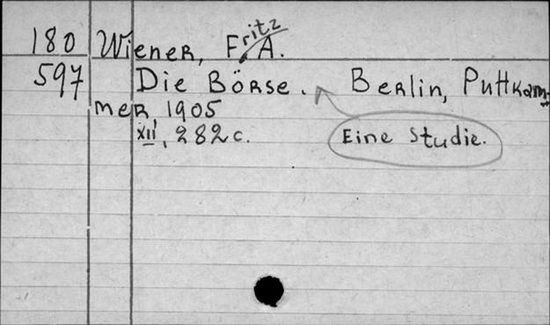 180 Wiener, Fritz A.
597 Die Börse. Berlin, Puttkam-
mer 1905
XII, 282 c.
Eine Studie.